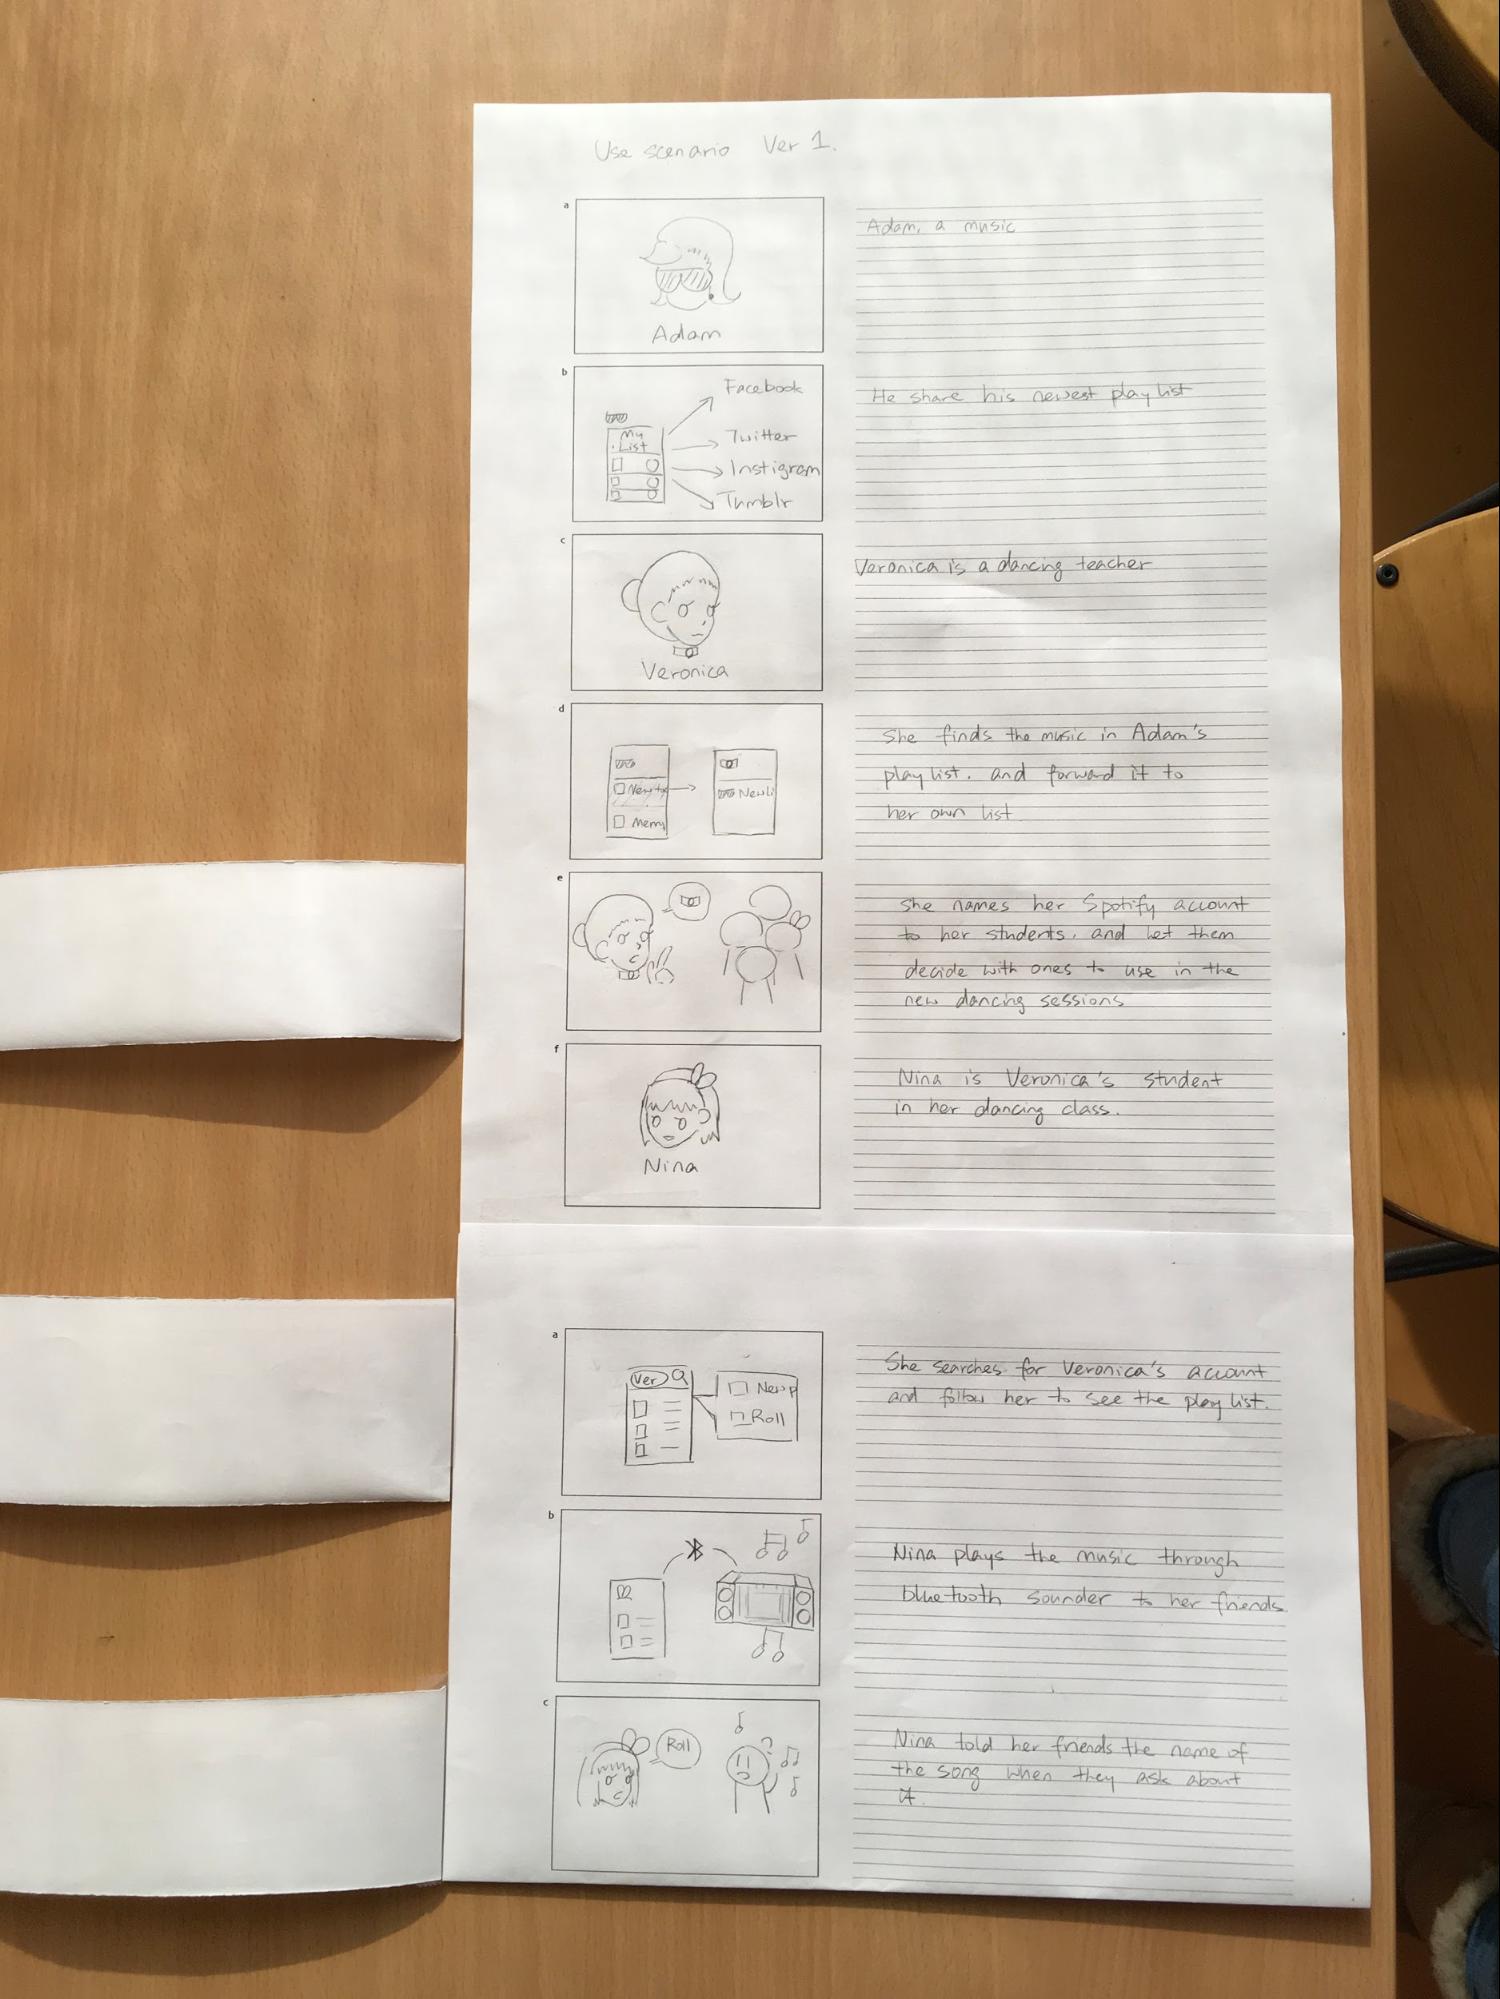 Use scenario Ver 1.
a
Adam
Adam, a music
b
My
List
Facebook
Twitter
Instigram
Tumblr
He share his newest play list
c
Veronica
Veronica is a dancing teacher
d
Merry
She finds the music in Adam's
play list. and forward it to
her own list
e
She names her Spotify account
to her students. and let them
decide with ones to use in the
new dancing sessions
f
Nina
Nina is Veronica's student
in her dancing class.
a
Ver
New p
Roll
She searches for Veronica's account
and follow her to see the play list.
b
Nina plays the music through
bluetooth sounder to her friends
c
Roll
Nina told her friends the name of
the song when they ask about
it.